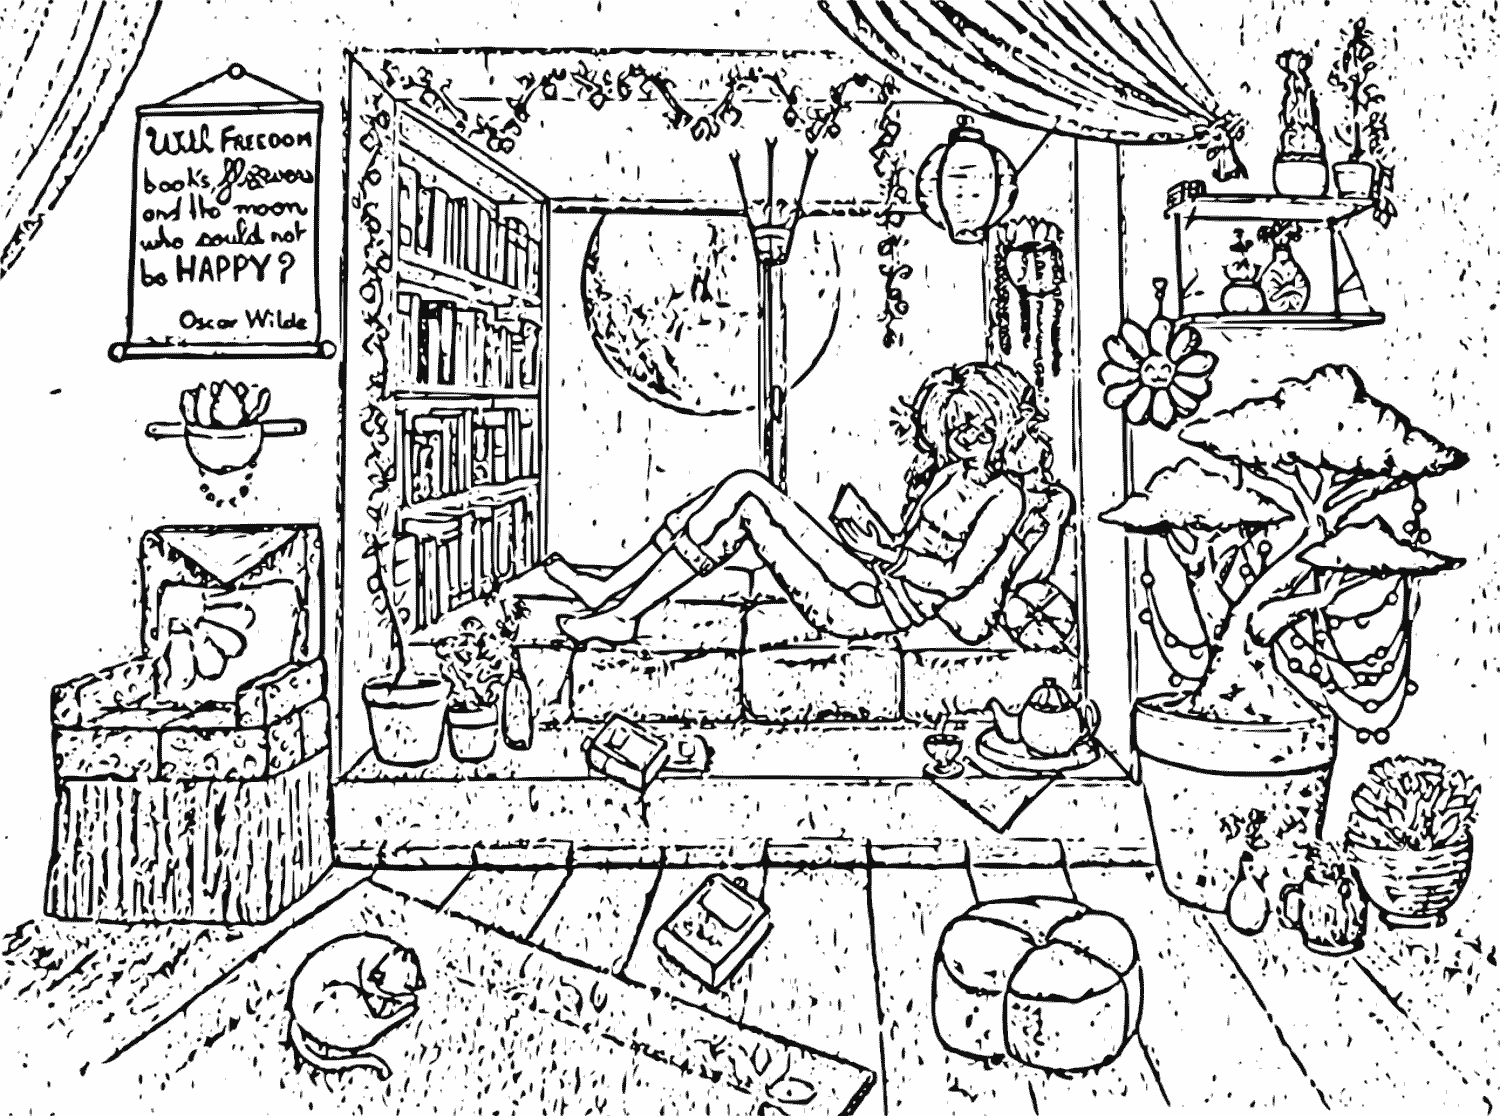 With FREEDOM
books flowers
and the moon
who would not
be HAPPY?
Oscar Wilde